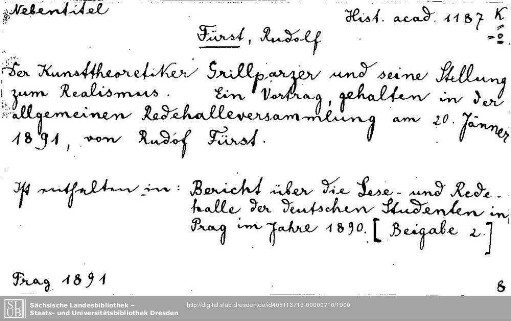 Nebentitel
Hist. acad. 1187 K
Fürst, Rudolf
Der Kunsttheoretiker Grillparzer und seine Stellung
zum Realismus. Ein Vortrag, gehalten in der
allgemeinen Redehalleversammlung am 20. Jänner
1891, von Rudof Fürst.
Ist enthalten in: Bericht über die Lese- und Rede-
halle der deutschen Studenten in
Prag im Jahre 1890. [Beigabe 2.]
Prag 1891
8
SLUB
Sächsische Landesbibliothek –
Staats- und Universitätsbibliothek Dresden